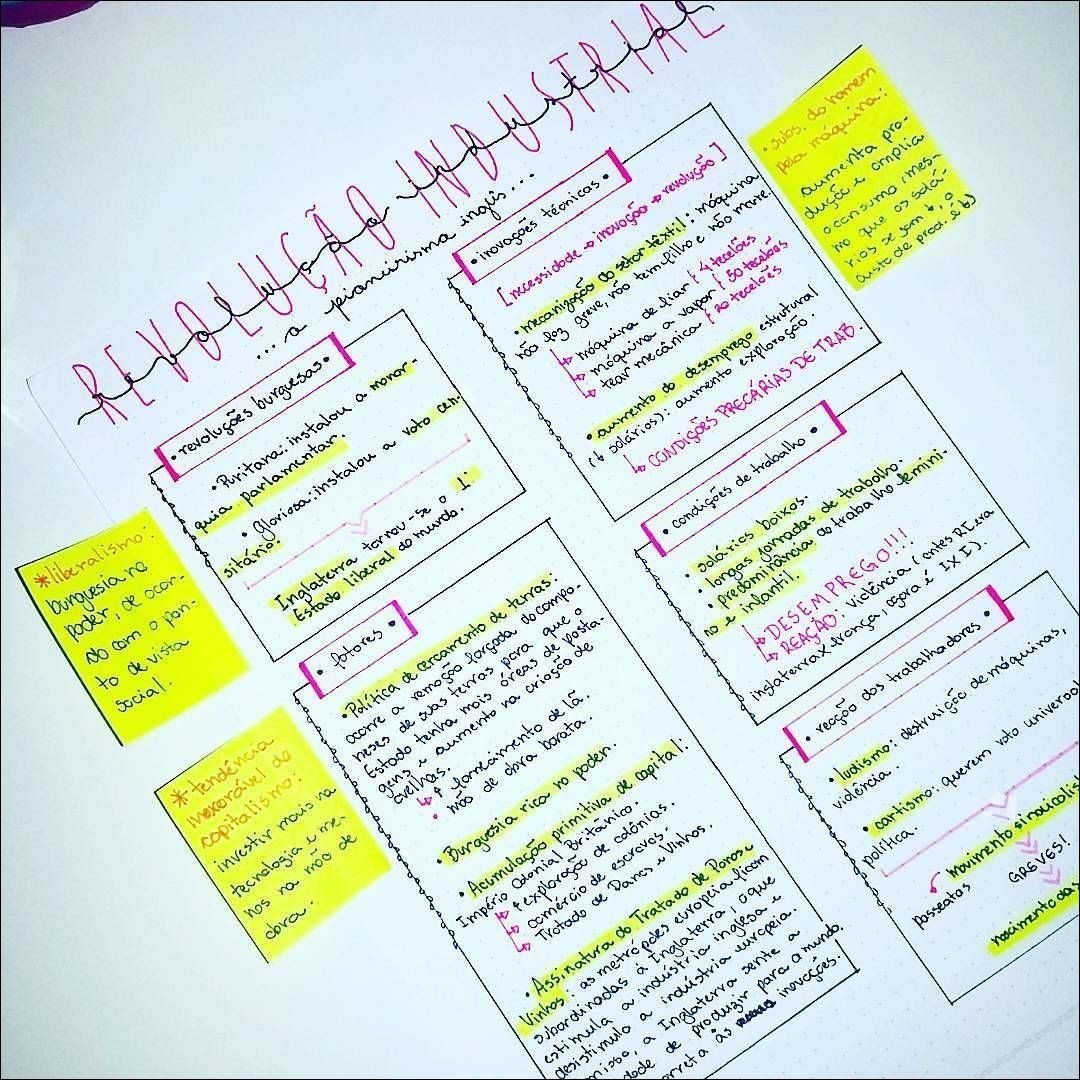 REVOLUÇÃO INDUSTRIAL
revolução industrial
... a pioneirisma inglês ...
• revoluções burguesas •
• Puritana: instalou a monar-
quia parlamentar.
• Gloriosa: instalou a voto cen-
sitário.
Inglaterra tornou-se o 1º
Estado liberal do mundo.
* liberalismo:
burguesia no
poder, de acor-
do com o pon-
to de vista
social.
• fatores •
• Política de cercamento de terras:
ocorre a remoção forçada do campo-
neses de suas terras para que o
Estado tenha mais áreas de posta-
gens e aumento na criação de
ovelhas.
↳ ↑ fornecimento de lã.
mão de obra barata.
• Burguesia rica no poder.
• Acumulação primitiva de capital:
Império Colonial Britânico.
↳ ↑ exploração de colônias.
↳ comércio de escravos.
↳ Tratado de Panos e Vinhos.
• Assinatura do Tratado de Panos e
Vinhos: as metrópoles europeia ficam
subordinadas à Inglaterra, o que
estimula a indústria inglesa e
desistimula a indústria europeia.
isso, a Inglaterra sente a
dade de produzir para o mundo.
rreta às inovações.
* tendência
inexorável do
capitalismo:
investir mais na
tecnologia e me-
nos na mão de
obra.
• inovações técnicas •
[necessidade → inovação → revolução]
• mecanização do setor têxtil: máquina
não faz greve, não tem filho e não morre.
↳ máquina de fiar / 4 tecelões
↳ máquina a vapor / 50 tecelões
↳ tear mecânica / 20 tecelões
• aumento do desemprego estrutural
(↓ salários): aumento exploração.
↳ CONDIÇÕES PRECÁRIAS DE TRAB.
• subs. do homem
pela máquina:
aumenta pro-
dução e amplia
o consumo (mes-
mo que os salá-
rios sejam b, o
custo de prod. é b)
• condições de trabalho •
• salários baixos.
• longas jornadas de trabalho.
• predominância do trabalho femini-
no e infantil.
↳ DESEMPREGO!!!
↳ REAÇÃO: violência (antes RI era
inglaterra X frança, agora é I X I).
• reação dos trabalhadores •
• ludismo: destruição de máquinas,
violência.
• cartismo: querem voto universal
política.
movimento sinacialis
passeatas GREVES!
nascimento das